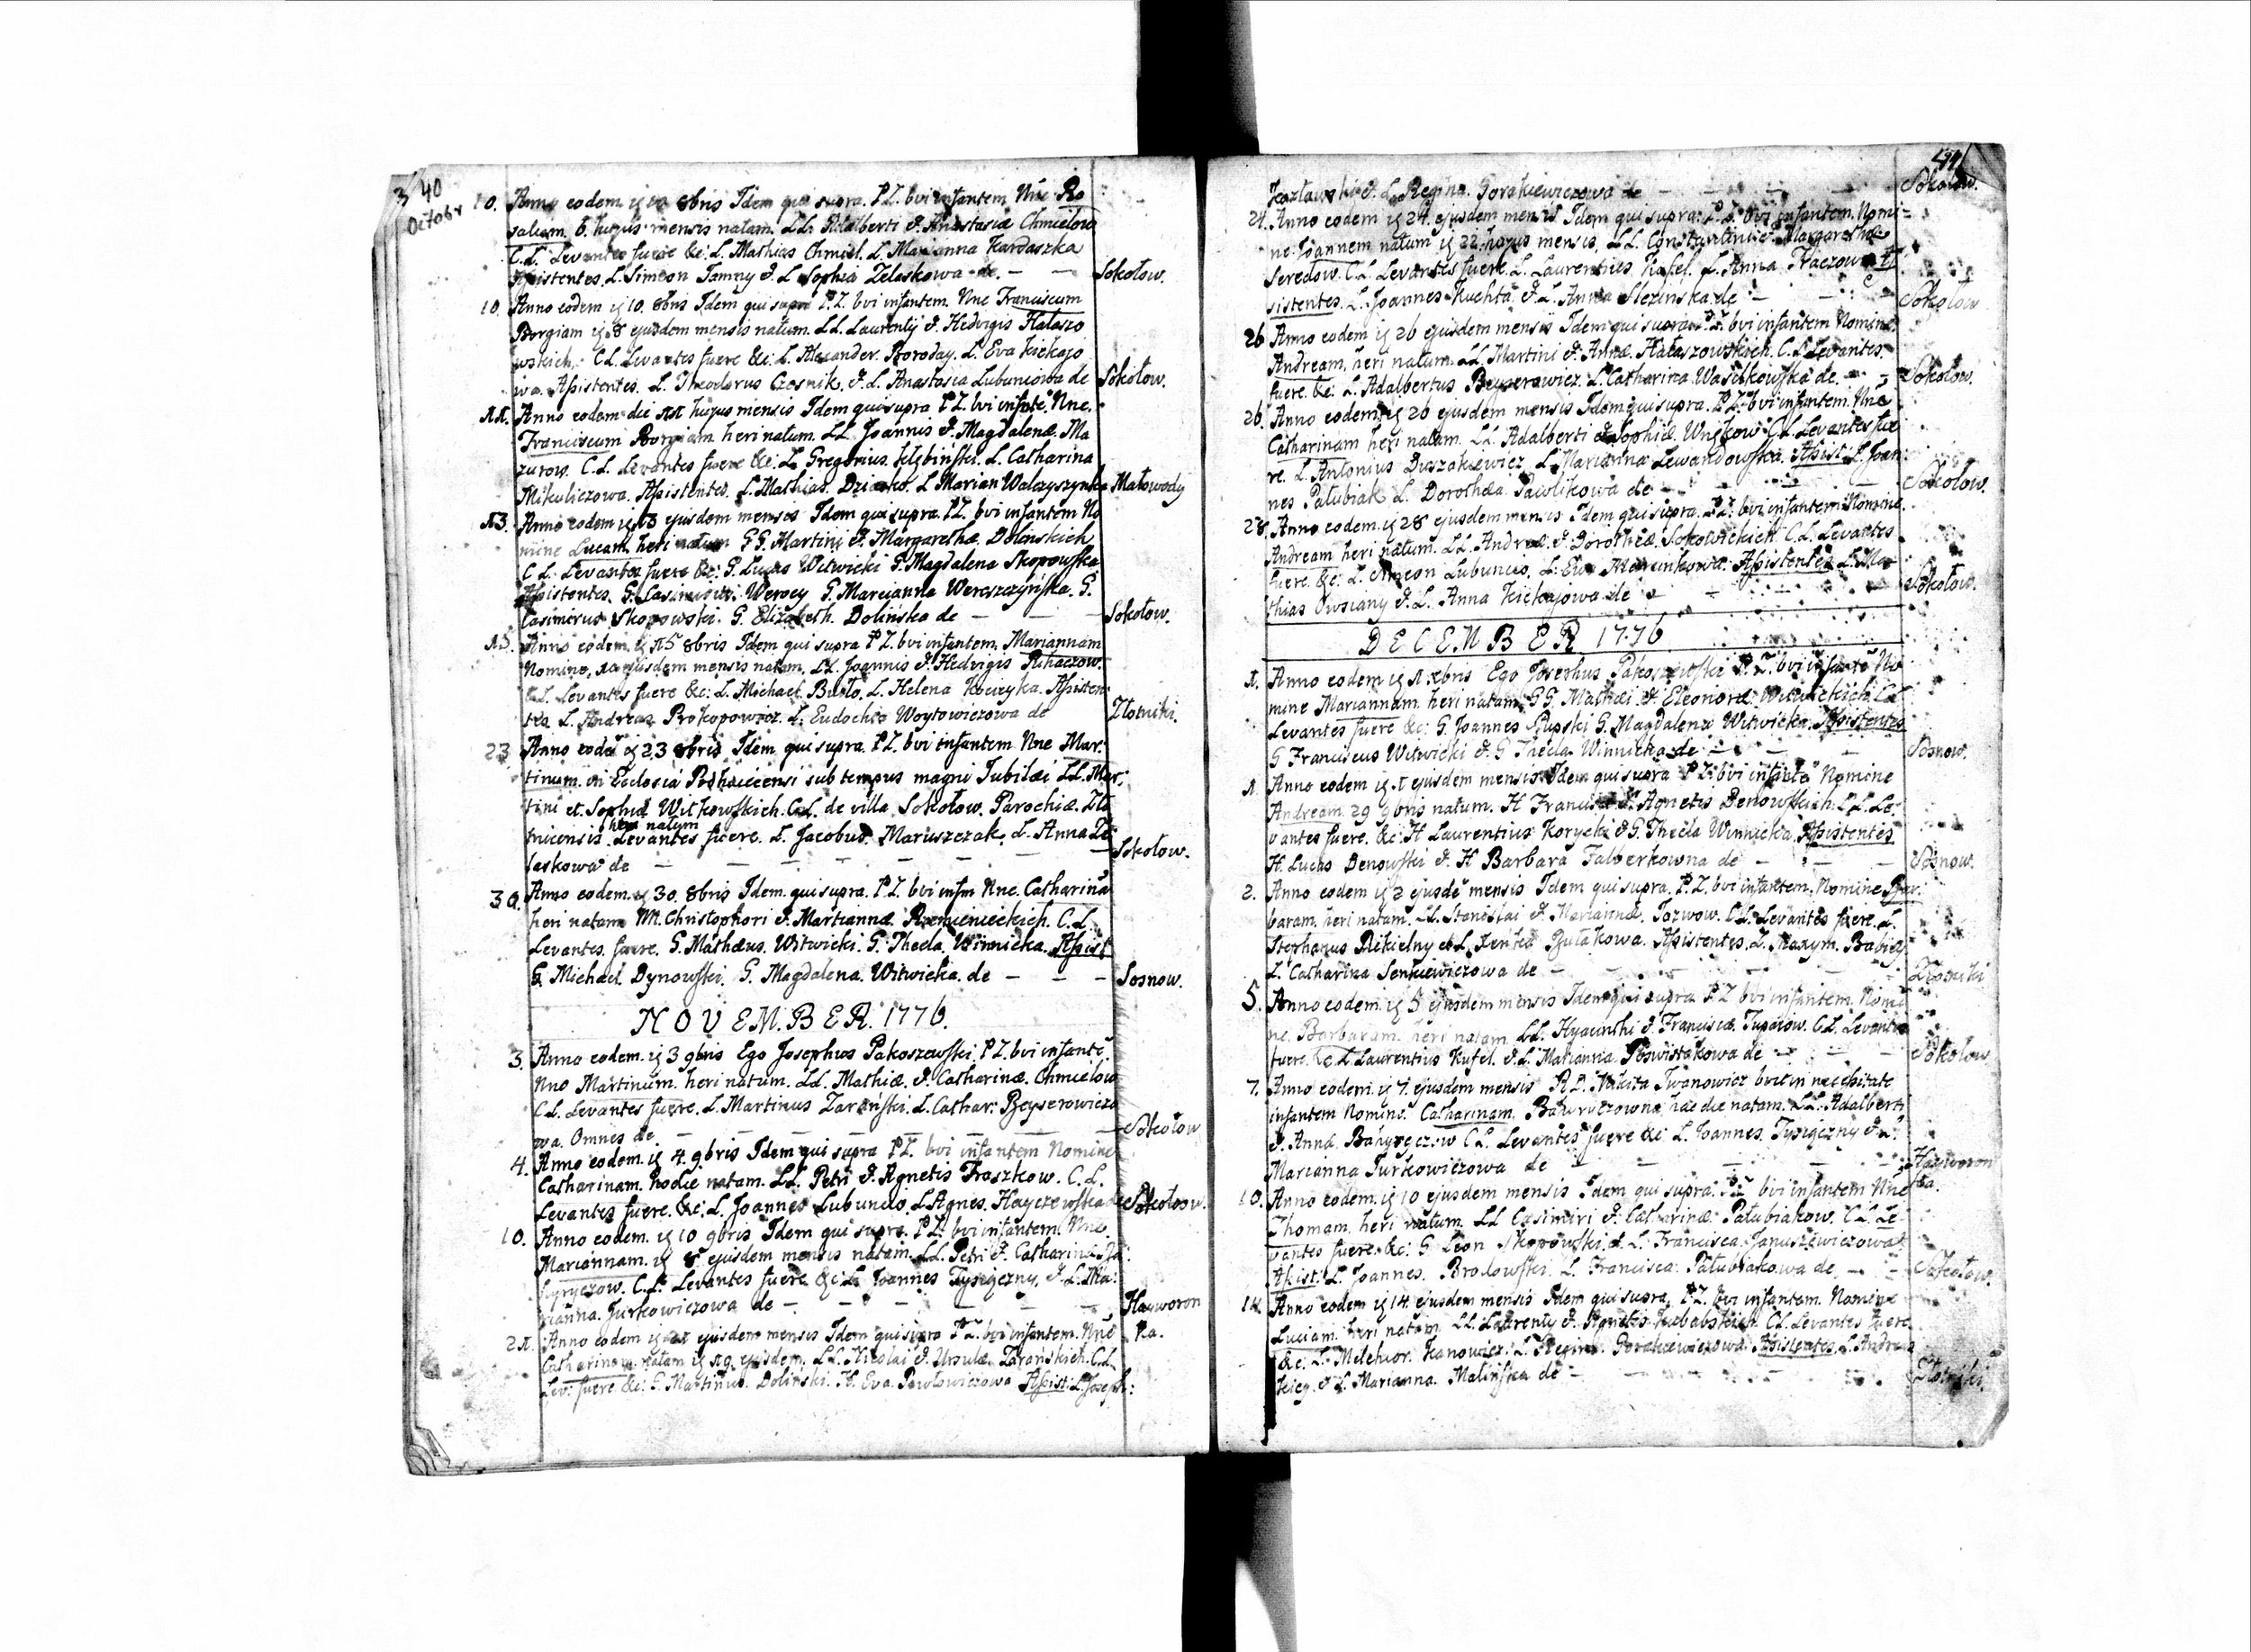 3 40
Octobr
10. Anno eodem ig 10 8bris Idem qui supra. P Z. bvi infantem Nne Ro
saliam. 6. hujus mensis natam. LL. Adalberti & Anastasiæ Chmielow
C.L. Levantes fuere &c: L. Mathias Chmiel. L. Marianna Kardaszka
Assistentes. L. Simeon Tamny & L Sophia Zelaskowa de. — — Sokołow.
10. Anno eodem ig 10. 8bris Idem qui supra P Z. bvi infantem. Nne Franciscum
Borgiam ig 8 ejusdem mensis natum. LL. Laurentij & Hedvigis Hałaszo
wskich. C.L. Levantes fuere &c: L. Alexander Boroday. L. Eva Kickajo
wa. Assistentes. L. Theodorus Czesnik, & L. Anastasia Lubuniowa de Sokołow.
11. Anno eodem die 11 hujus mensis Idem qui supra P Z. bvi infate. Nne.
Franciscum Borgiam heri natum. LL. Joannis & Magdalenæ. Ma
zurow. C.L. Levantes fuere &c: L. Gregorius Klębiński. L. Catharina
Mikuliczowa. Assistentes. L. Mathias. L Marian Walczyszynka Małowody
13. Anno eodem ig 13 ejusdem menses Idem qui supra. P Z. bvi infantem No
mine Lucam heri natum G G. Martini & Margarethæ Dolinskich
C L. Levantes fuere &c: G. Lucas Witwicki G. Magdalena Skopowska
Assistentes. G. Casimirus Werocy G. Marianna Wereszczyńska. G.
Casimirus Skopowski. G. Elizabeth. Dolińska de — — Sokołow.
15. Anno eodem. ig 15 8bris Idem qui supra P Z. bvi infantem. Mariannam
Nomine, ejusdem mensis natam. LL. Joannis & Hedvigis Rihaczow.
C.L. Levantes fuere &c: L. Michael L. Helena Kociryka. Assisten
tes L. Andreas Prokopowicz. L. Eudochia Woytowiczowa de Złotniki.
23 Anno eode ig 23 8bris Idem qui supra. P Z. bvi infantem Nne Mar:
tinum. in Ecclesia Podhaiecensi sub tempus magni Jubilæi LL. Mar:
tini et Sophiæ Witkowskich. C.L. de villa Sokołow. Parochiæ. Zło
heri natum
tnicensis Levantes fuere. L. Jacobus Mariuszczak. L. Anna Ze
laskowa de — — — — — Sokołow.
30. Anno eodem. ig 30. 8bris Idem. qui supra. P Z. bvi infm Nne. Catharina
heri natam M. Christophori & Mariannæ Rzemienieckich. C.L.
Levantes. fuere. G. Mathæus. Witwicki. G. Thecla Winnicka. Assist
G. Michael Dynowski. G. Magdalena. Witwicka. de — — — Sosnow.
NOVEMBER. 1776.
3. Anno eodem. ig 3 9bris Ego Josephus Pakoszewski. P Z. bvi infante.
Nne Martinum. heri natum. LL. Mathiæ & Catharinæ. Chmielow
C L. Levantes fuere. L. Martinus Zarański. L. Cathar: Beyserowiczo
wa. Omnes de — — — — — Sokołow
4. Anno eodem. ig 4. 9bris Idem qui supra P Z. bvi infantem Nomine
Catharinam. hodie natam. LL. Petri & Agnetis Fraszkow. C.L.
Levantes fuere. &c: L. Joannes Lubuncio. L Agnes. Hayczewska de Sokołow.
10. Anno eodem. ig 10 9bris Idem qui supra. P Z. bvi infantem. Nne
Mariannam. ig 8 ejusdem mensis natam. LL. Petri & Catharinæ
C.L. Levantes fuere &c: L. Joannes Tysięczny & L. Ma:
rianna. Jurkowiczowa de — — — — Hayworon
21. Anno eodem ig 21 ejusdem mensis Idem qui supra P Z. bvi infantem. Nne ka.
Catharinam natam ig 19. ejusdem. LL. Nicolai & Ursulæ Zarańskich. C.L.
Lev: fuere &c: G. Martinus. Dolinski. H. Eva. Pawłowiczowa Assist: L. Joseph:
Kozłowski & L. Regina. Gorakiewiczowa de — — — Sokołow.
24. Anno eodem ig 24. ejusdem mensis Idem qui supra. P Z. bvi infantem. Nomi=
ne. Joannem natum ig 22. hujus mensis. LL. Constantini & Margarethæ
Seredow. C.L. Levantes fuere. L. Laurentius Kufel. L. Anna Traczowa As
sistentes. L. Joannes Kuchta & L. Anna Slezińska de — — Sokołow
26 Anno eodem ig 26 ejusdem mensis Idem qui supra. P Z. bvi infantem Nomine.
Andream. heri natum. LL. Martini & Annæ. Hałaszowskich. C.L. Levantes.
fuere. &c: L. Adalbertus Beyserowicz. L. Catharina Wasilkowska de. — Sokołow.
26. Anno eodem. ig 26 ejusdem mensis Idem qui supra. P Z. bvi infantem. Nne
Catharinam heri natam. LL. Adalberti & Sophiæ. C.L. Levantes fue
re. L. Antonius Duszakiewicz. L. Marianna Lewandowska. Assist: L. Joan:
nes Pałubiak L. Dorothea Pawlikowa de — — — Sokołow.
28. Anno eodem. ig 28 ejusdem mensis Idem qui supra. P Z. bvi infantem Nomine.
Andream heri natum. LL. Andreæ & Dorotheæ. Sokolnickich. C.L. Levantes
fuere. &c: L. Simeon Lubuncio. L. Eva. Assistentes L. Ma:
thias Owsiany & L. Anna Kickajowa de — — Sokołow.
DECEMBER 1776
1. Anno eodem ig 1. xbris Ego Josephus Pakoszewski P. Z. bvi infante No
mine Mariannam. heri natam. G G. Mathæi & Eleonoræ. Witwickich. C.L.
Levantes fuere &c: G. Joannes Rupski G. Magdalena Witwicka. Assistentes
G Franciscus Witwicki & G Thecla Winnicka de — — Sosnow.
1. Anno eodem ig 1 ejusdem mensis. Idem qui supra P Z. bvi infante Nomine
Andream 29 9bris natum. H Francisci & Agnetis Denowskich. C.L. Le
vantes fuere. &c: H Laurentius Korycki & G. Thecla Winnicka. Assistentes
H. Lucas Denowski & H Barbara Falberkowna de — — Sosnow.
2. Anno eodem ig 2 ejusde mensis Idem qui supra. P. Z. bvi infantem. Nomine Bar
baram. heri natam. LL. Stanislai & Mariannæ. C.L. Levantes fuere. L.
Stephanus Dikielny et L. Bułakowa. Assistentes. L. Maxym. Babiy
L. Catharina Senkiewiczowa de — — — Złotniki
5. Anno eodem. ig 5 ejusdem mensis Idem qui supra P Z bvi infantem. Nomi
ne. Barbaram. heri natam. LL. Hyacinthi & Franciscæ. C.L. Levantes
fuere. &c L Laurentius Kufel. & L. Marianna Poswistakowa de — — Sokołow
7. Anno eodem. ig 7. ejusdem mensis R D. Nikita Iwanowicz bvit in necessitate
infantem Nomine. Catharinam. hac die natam. LL. Adalberti
& Annæ C L. Levantes fuere &c L. Joannes. Tysięczny & L.
Marianna Jurkowiczowa de — — — — Hayworon
10. Anno eodem. ig 10 ejusdem mensis Idem qui supra. P Z bvi infantem Nne ka.
Thomam. heri natum. LL Casimiri & Catharinæ Pałubiakow. C.L. Le
vantes fuere. &c: G Leon Skopowski. & L: Francisca. Januszewiczowa
Assist: L. Joannes. Brodowski. L. Francisca. Pałubiakowa de — — Sokołow.
14. Anno eodem ig 14. ejusdem mensis Idem qui supra. P Z. bvi infantem. Nomine
Luciam. heri natam. LL. Laurenty & Agnetis C L. Levantes fuere
&c: L. Melchior. Kanowicz. L. Regina Gorakiewiczowa. Assistentes. L. Andreas
& L. Marianna. Malińska de — — — Złotniki.